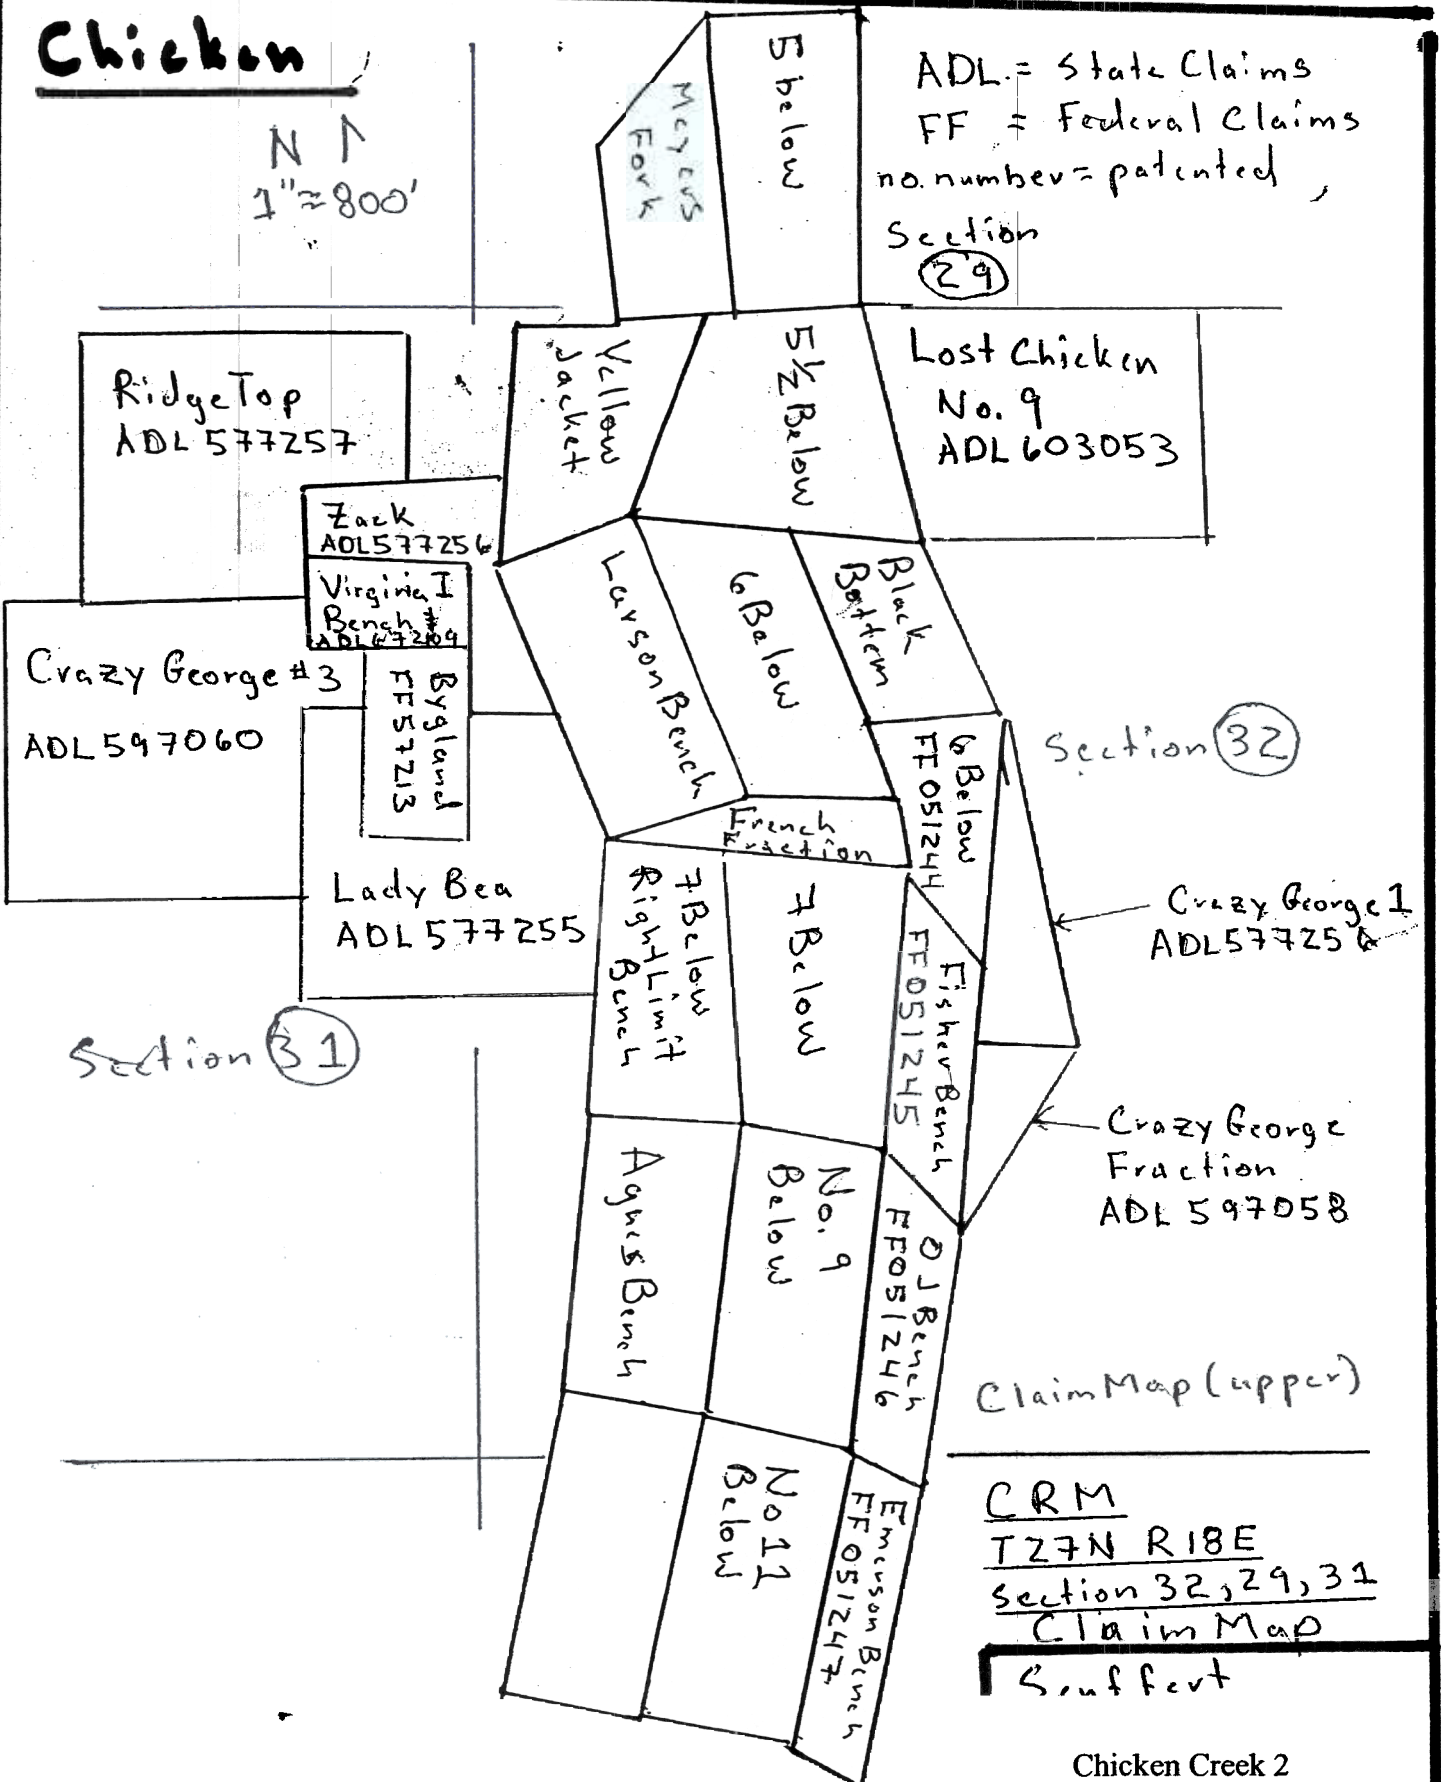 Chicken
N
1"≈800'
Meyers
Fork
5 below
ADL = State Claims
FF = Federal Claims
no. number = patented,
Section
29
RidgeTop
ADL 577257
Yellow
Jacket
5½ Below
Lost Chicken
No. 9
ADL 603053
Zack
ADL577256
Virginia I
Bench
Crazy George #3
ADL 597060
Bygland
FF57213
Larson Bench
6 Below
Black
Bottem
6 Below
FF051244
Section 32
French
Fraction
Lady Bea
ADL 577255
7 Below
Right Limit
Bench
7 Below
Fisher Bench
FF051245
Crazy George 1
Section 31
Crazy George
Fraction
ADL 597058
Agness Bench
No. 9
Below
OJ Bench
FF051246
Claim Map (upper)
No 11
Below
Emerson Bench
FF051247
CRM
T27N R18E
Section 32, 29, 31
Claim Map
Seuffert
Chicken Creek 2